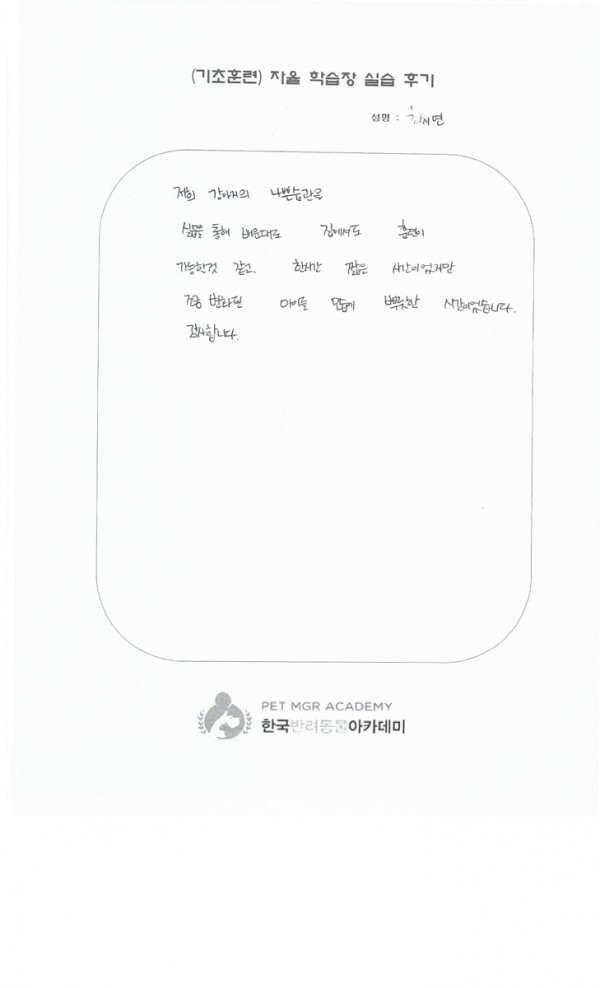 (기초훈련) 자율 학습장 실습 후기
성명 : 최지연
저희 강아지의 나쁜습관을
실습을 통해 배운대로 집에서도 훈련이
가능한것 같고, 한시간 짧은 시간이었지만
조금 변화된 아이들 모습에 뿌듯한 시간이었습니다.
감사합니다.
PET MGR ACADEMY
한국반려동물아카데미